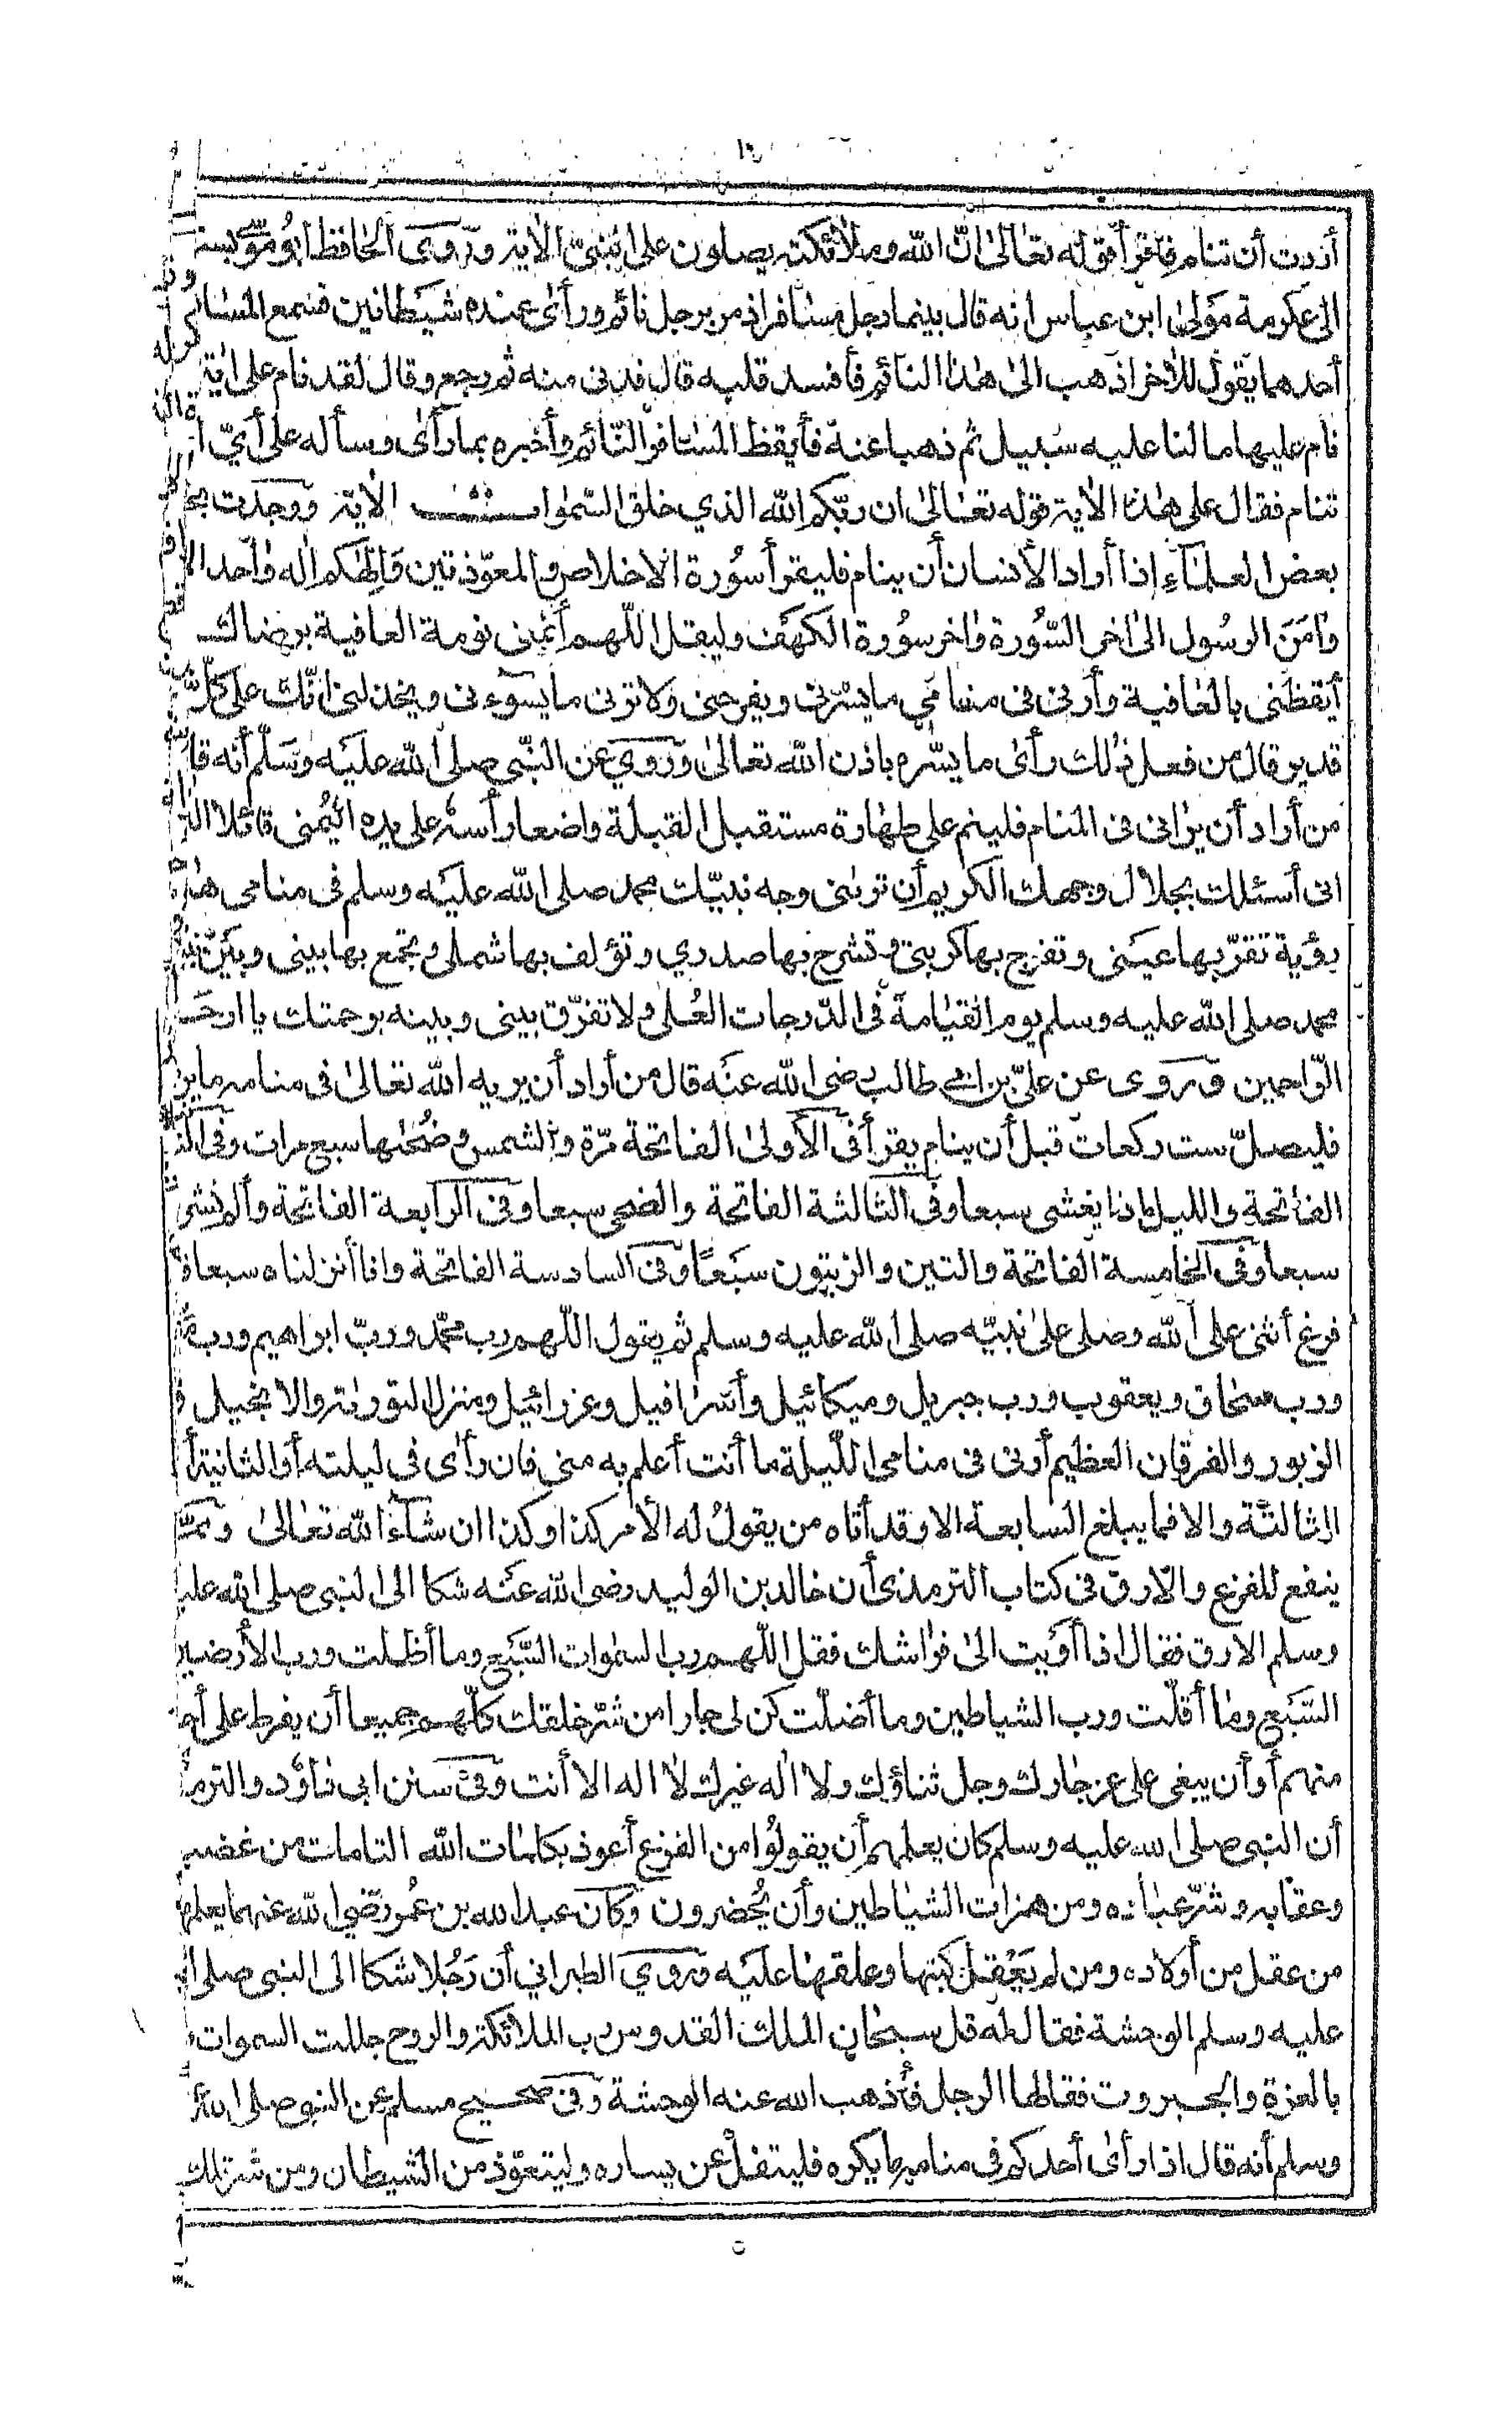 أردت أن تنام فاقرأ قوله تعالى انّ الله وملائكته يصلون على النبيّ الآية وروى الحافظ ابو موسى بسنده
الى عكرمة مولى ابن عباس انه قال بينما رجل مسافر اذ مر برجل نائم ورأى عنده شيطانين فسمع المسافر
أحدهما يقول للآخر اذهب الى هذا النائم فأفسد قلبه قال فدنى منه ثم رجع وقال لقد نام على اٰية
نام عليها مالنا عليه سبيل ثم ذهبا عنه فأيقظ المسافر النّائم وأخبره بما رأى وسأله على أيّ
تنام فقال على هذا الآية قوله تعالى ان ربّكم الله الذي خلق السّموات الآية ووجدت بخط
بعض العلماء إذا أراد الأنسان أن ينام فليقرأ سورة الاخلاص والمعوّذتين وَالهٰكم اله واحد
واٰمن الرسول الى اٰخر السّورة واٰخر سورة الكهف وليقل اللّهم أنمنى نومة العافية برضاك
أيقظنى بالعافية وأرنى فى منامى ما يسّرنى ويفرحنى ولا ترنى ما يسوءنى ويخذلنى انّك على كلّ
قدير قال من فعل ذٰلك رأى ما يسّره باذن الله تعالى وروي عن النّبى صلى الله عليه وسلّم أنه قال
من أراد أن يرانى فى المنام فلينم على طهارة مستقبل القبلة واضعا رأسه على يده اليمنى قائلا
انى أسئلك بجلال وجهك الكريم أن ترينى وجه نبيّك محمد صلى الله عليه وسلم فى منامى هذا
رؤية تقرّ بها عينى وتفرج بها كربتى وتشرح بها صدري وتؤلف بها شملى وتجمع بها بينى وبين
محمد صلى الله عليه وسلم يوم القيامة فى الدّرجات العُلى ولا تفرّق بينى وبينه برحمتك يا ارحم
الرّاحمين وروى عن علىّ بن ابى طالب رضى الله عنه قال من أراد أن يريه الله تعالى فى منامه ما يريد
فليصلّ ست ركعات قبل أن ينام يقرأ فى الأولى الفاتحة مرّة والشمس وضحٰها سبع مرات وفى
الفاتحة والليل اذا يغشى سبعا وفى الثالثة الفاتحة والضحى سبعا وفى الرابعة الفاتحة وألم نشرح
سبعا وفى الخامسة الفاتحة والتين والزيتون سبعًا وفى السادسة الفاتحة وانا أنزلناه سبعا
فرغ أثنى على الله وصلى على نبيّه صلى الله عليه وسلم ثم يقول اللّهم رب محمّد وربّ ابراهيم ورب
ورب اسحاق ويعقوب ورب جبريل وميكائيل وأسرافيل وعزرائيل ومنزل التورٰية والانجيل
الزبور والفرقان العظيم أرنى فى منامى اللّيلة ما أنت أعلم به منى فان رأى فى ليلته أو الثانية
الثالثة والا فما يبلغ السابعة الا وقد أتاه من يقول له الأمر كذا وكذا ان شاء الله تعالى
ينفع للفزع والأرق فى كتاب الترمذى أن خالد بن الوليد رضى الله عنه شكا الى النبى صلى الله عليه
وسلم الارق فقال اذا أويت الى فراشك فقل اللّهم رب السمٰوات السّبع وما أظلت ورب الأرضين
السّبع وما أقلّت ورب الشياطين وما أضلّت كن لى جارا من شرّ خلقك كلّهم جميعا أن يفرط على أحد
منهم أو أن يبغى على عز جارك وجل ثناؤك ولا اله غيرك لا اله الا أنت وفى سنن ابى داود والترمذى
أن النبى صلى الله عليه وسلم كان يعلمهم أن يقولوا من الفزع أعوذ بكلمات الله التامات من غضبه
وعقابه وشرّ عباده ومن همزات الشياطين وأن يُحضرون وكان عبد الله بن عُمر رضي الله عنهما يعلمها
من عقل من أولاده ومن لم يعقل كتبها وعلقها عليه وروي الطبراني أن رَجُلا شكا الى النبى صلى الله
عليه وسلم الوحشة فقال له قل سبحان الملك القدوس رب الملائكة والروح جللت السموات
بالعزة والجبروت فقالها الرجل فأذهب الله عنه الوحشة وفى صحيح مسلم عن النبى صلى الله
وسلم أنه قال اذا رأى أحدكم فى منامه ما يكره فليتفل عن يساره وليتعوّذ من الشيطان ومن شر تلك